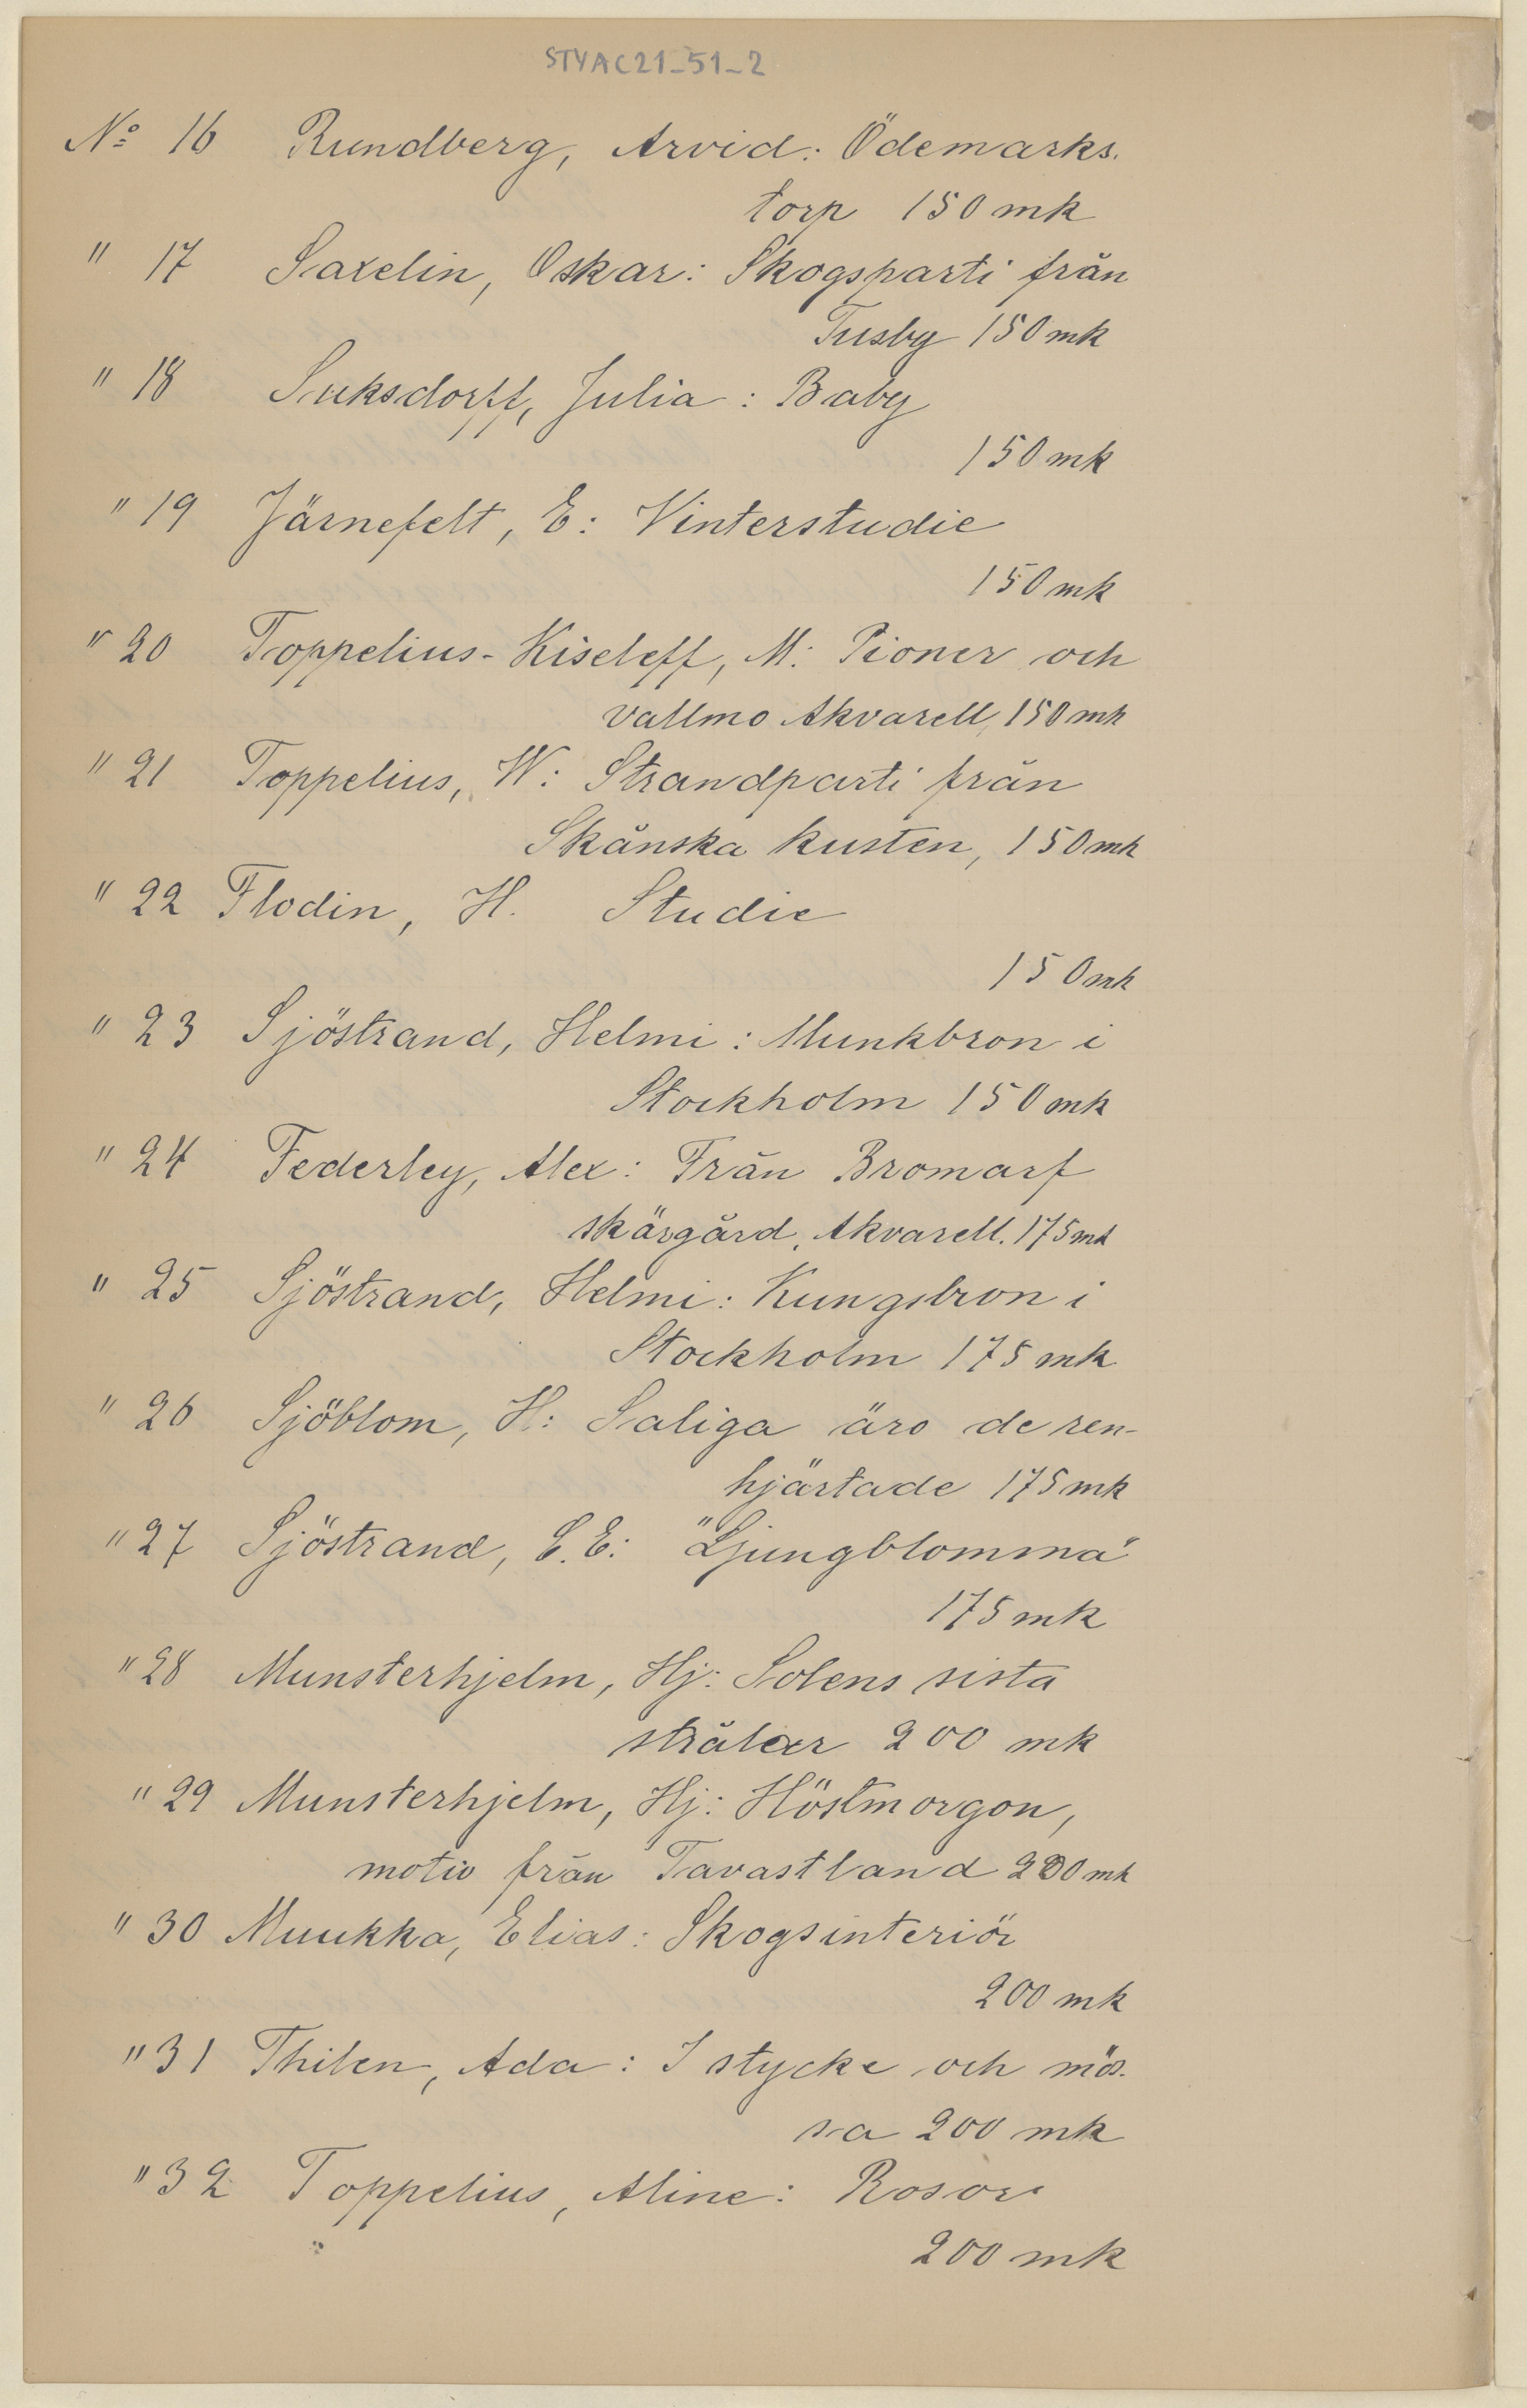 STYAC21_51_2
Nº 16 Rundberg, Arvid: Ödemarks-
torp 150 mk
" 17 Saxelin, Oskar: Skogsparti från
Tusby 150 mk
" 18 Suksdorff, Julia: Baby
150 mk
" 19 Järnefelt, E: Vinterstudie
150 mk
" 20 Toppelius-Kiseleff, M: Pioner och
vallmo Akvarell, 150 mk
" 21 Toppelius, W: Strandparti från
Skånska kusten, 150 mk
" 22 Flodin, H. Studie
150 mk
" 23 Sjöstrand, Helmi: Munkbron i
Stockholm 150 mk
" 24 Federley, Alex: Från Bromarf
skärgård, Akvarell. 175 mk
" 25 Sjöstrand, Helmi: Kungsbron i
Stockholm 175 mk
" 26 Sjöblom, H: Saliga äro de ren-
hjärtade 175 mk
" 27 Sjöstrand, C. E: "Ljungblomma"
175 mk
" 28 Munsterhjelm, Hj: Solens sista
strålar 200 mk
" 29 Munsterhjelm, Hj: Höstmorgon,
motiv från Tavastland 200 mk
" 30 Muukka, Elias: Skogsinteriör
200 mk
" 31 Thilen, Ada: I stycke och mös-
sa 200 mk
" 32 Toppelius, Aline: Rosor
200 mk